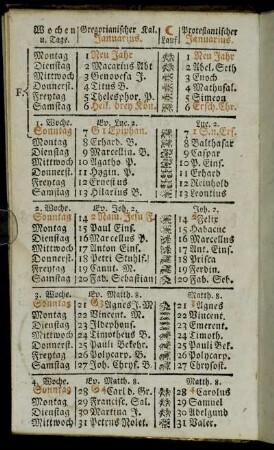 Wochen Gregorianischer Kal. ☾ Protestantischer
u. Tage. Januarius. Lauf Januarius.
Montag 1 Neu Jahr 1 Neu Jahr
Dienstag 2 Macarius Abt 2 Abel. Seth
Mittwoch 3 Genovefa J. 3 Enoch
Donnerst. 4 Titus B. 4 Methusal.
Freytag 5 Thelesphor. P. 5 Simeon
Samstag 6 Heil. drey Kön. 6 Ersch. Chr.
1. Woche. Ev. Luc. 2. Luc. 2.
Sonntag 7 G 1 Epiphan. 7 1 S.n. Ers.
Montag 8 Erhard. B. 8 Balthasar
Dienstag 9 Marcellin. B. 9 Caspar
Mittwoch 10 Agatho P. 10 P. Eins.
Donnerst. 11 Hygin. P. 11 Erhard
Freytag 12 Ernestus 12 Reinhold
Samstag 13 Hilarius B. 13 Leontius
2. Woche. Ev. Joh. 2. Joh. 2.
Sonntag 14 2 Nam. Jesu F. 14 2 Felix
Montag 15 Paul Eins. 15 Habacuc
Dienstag 16 Marcellus P. 16 Marcellus
Mittwoch 17 Anton Eins. 17 Ant. Eins.
Donnerst. 18 Petri Stuhlf. 18 Prisca
Freytag 19 Canut. M. 19 Ferdin.
Samstag 20 Fab. Sebastian 20 Fab. Seb.
3. Woche. Ev. Matth. 8. Matth. 8.
Sonntag 21 G 3 Agnes J. M 21 3 Agnes
Montag 22 Vincent. M. 22 Vincent.
Dienstag 23 Ildephons. 23 Emerent.
Mittwoch 24 Timotheus B. 24 Timoth.
Donnerst. 25 Pauli Bekehr. 25 Pauli Bek.
Freytag 26 Polycarp. B. 26 Polycarp.
Samstag 27 Joh. Chrys. B. 27 Chrysost.
4. Woche. Ev. Matth. 8. Matth. 8.
Sonntag 28 G 4 Carl d. Gr. 28 4 Carolus
Montag 29 Francisc. Sal. 29 Samuel
Dienstag 30 Martina J. 30 Adelgund
Mittwoch 31 Petrus Nolet. 31 Valer.